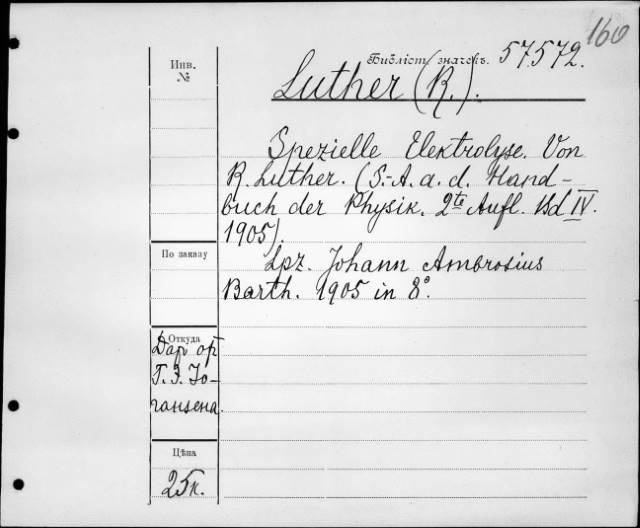 160
Инв.
№
Библіст. значокъ. 57572.
Luther (R.).
Spezielle Elektrolyse. Von
R. Luther. (S.-A. a. d. Hand-
buch der Physik. 2te Aufl. Bd IV.
1905).
По заказу
Lpz. Johann Ambrosius
Barth. 1905 in 8°.
Откуда
Дар от
Г. Э. Іо-
гансена.
Цѣна
25к.